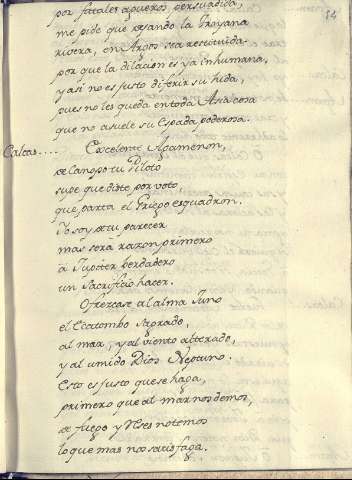 54
por fatales agueros persuadida,
me pide que dejando la Troyana
rivera, en Argos sea restituida.
por que la dilacion es ya inhumana,
y asi no es justo diferir su hida,
pues no les queda en toda Asia cosa
que no asuele su Espada poderosa.
Calcas.... Excelente Agamenon,
de Canopo tu Piloto
supe que diste por voto
que parta el Griego esquadron.
Yo soy de tu parecer
mas será razon primero
á Jupiter berdadero
un Sacrificio hacer.
Ofrezcase al alma Juno
el Ecatombo Sagrado,
al mar, y al viento alterado,
y al umido Dios Neptuno.
Esto es justo que se haga,
primero que al mar nos demos,
de fuego y Reses notemos
lo que mas nos satisfaga.